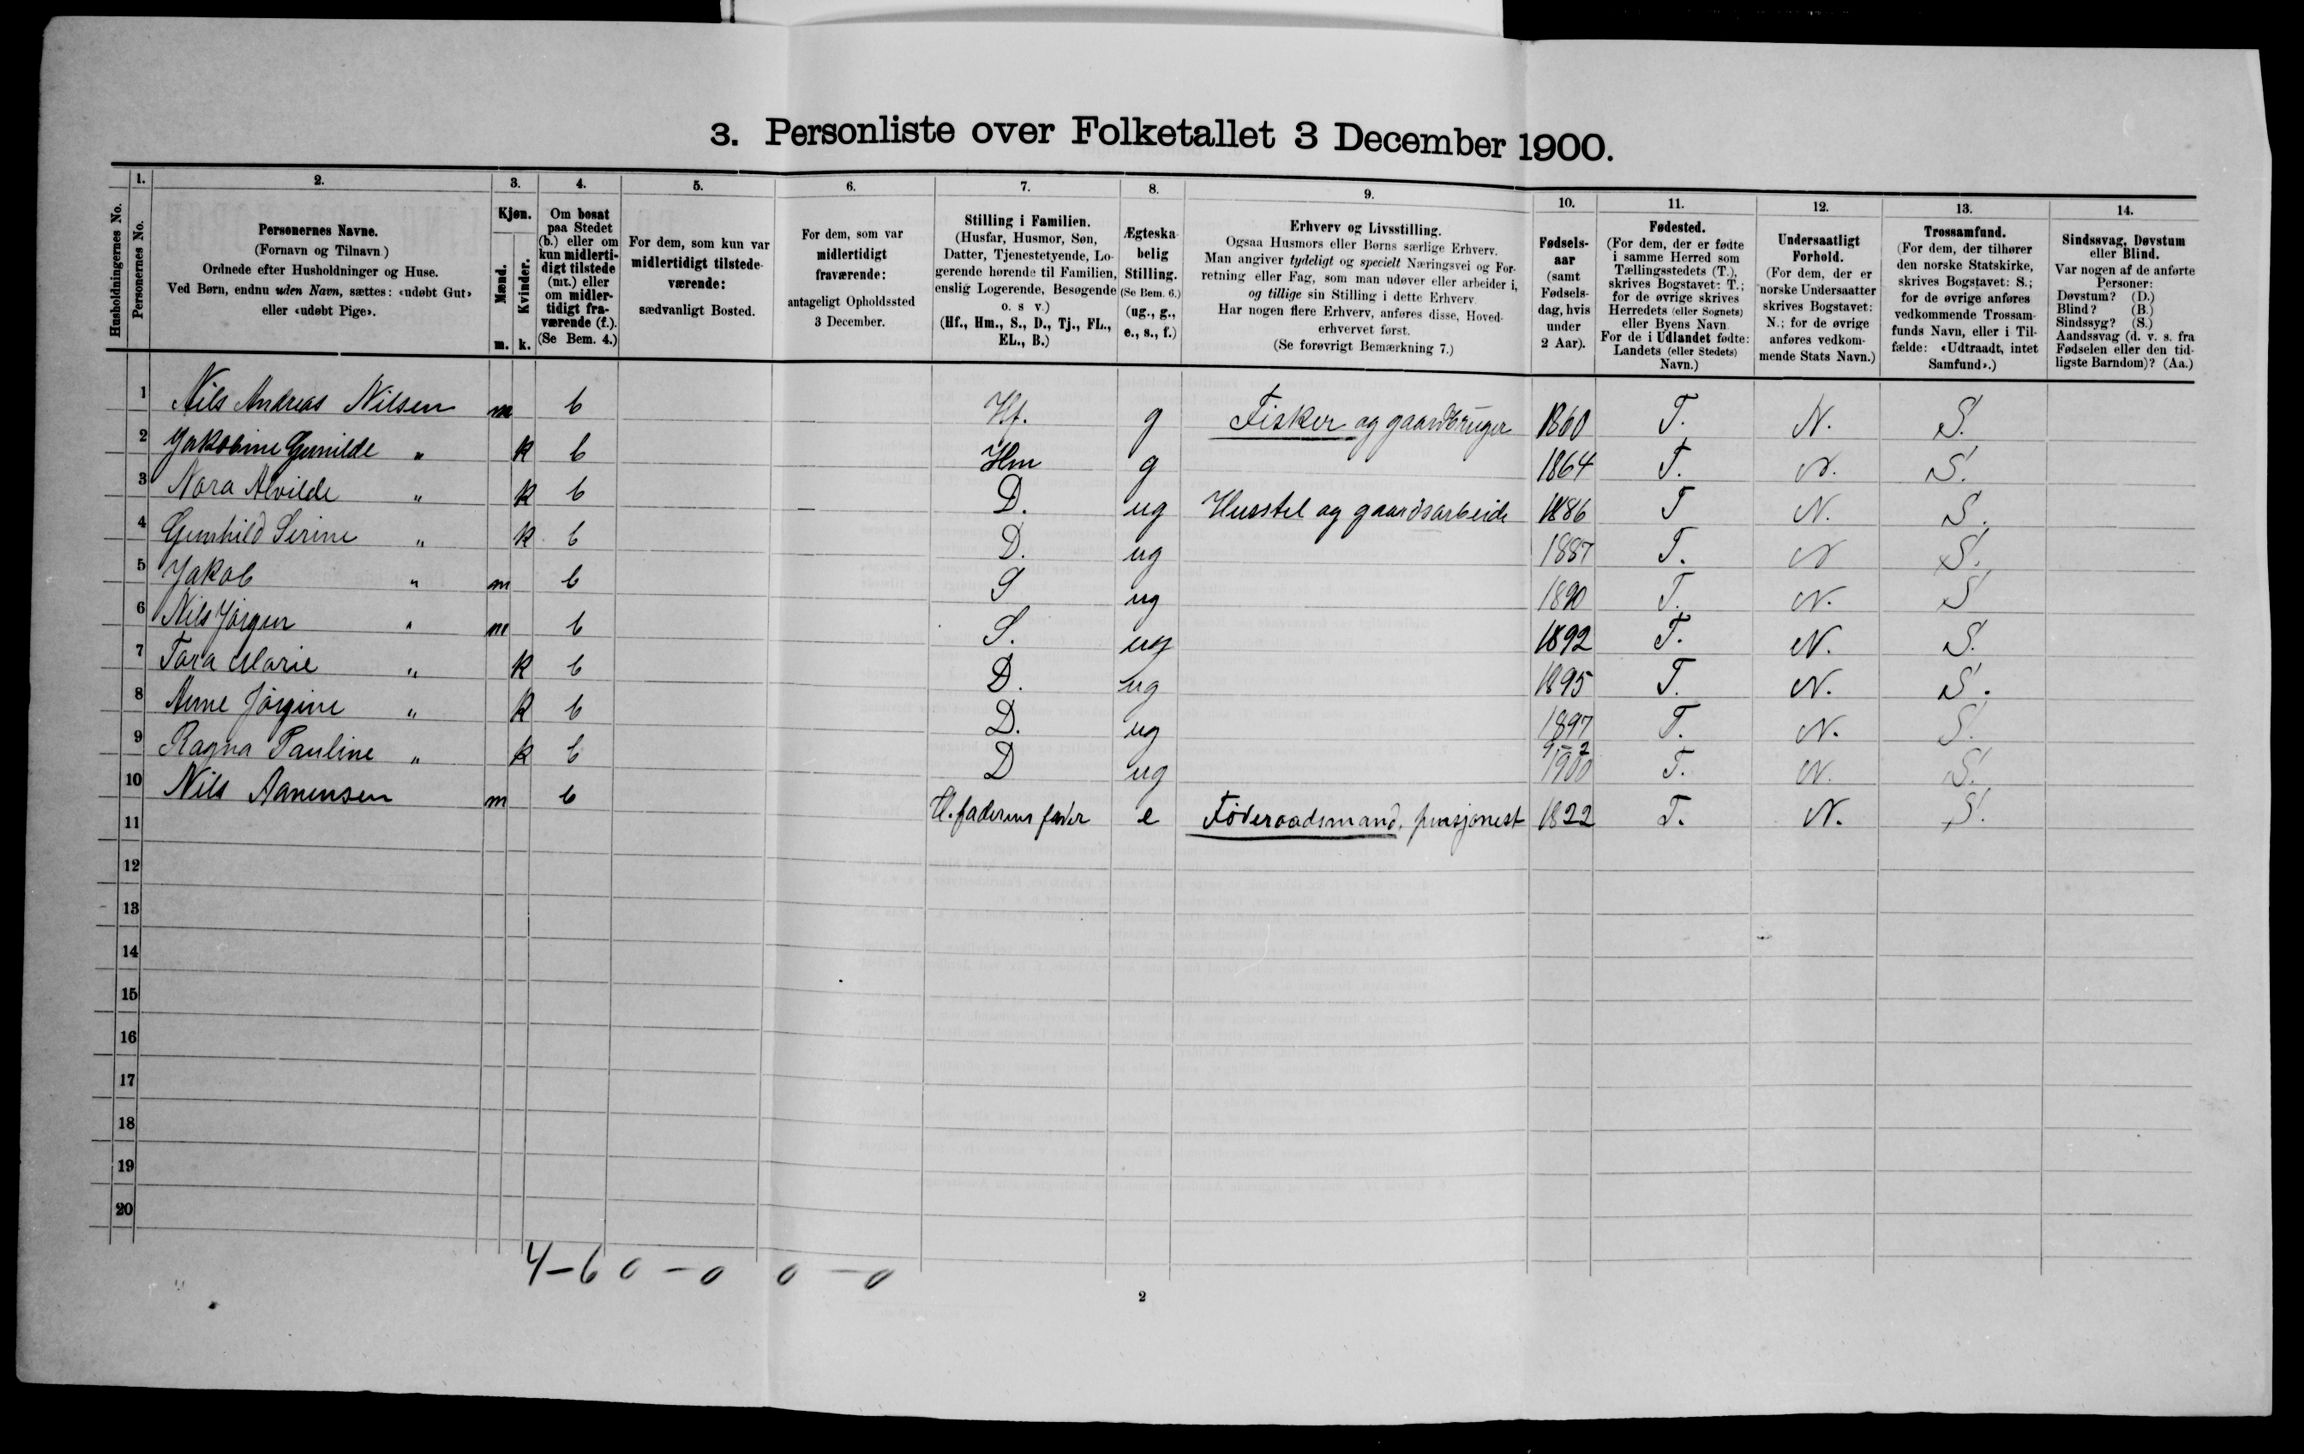 3. Personliste over Folketallet 3 December 1900.
1. 2. 3. 4. 5. 6. 7. 8. 9. 10. 11. 12. 13. 14.
Husholdningernes No.
Personernes No.
Personernes Navne.
(Fornavn og Tilnavn.)
Ordnede efter Husholdninger og Huse.
Ved Børn, endnu uden Navn, sættes: «udøbt Gut»
eller «udøbt Pige».
Kjøn.
Mænd.
Kvinder.
m. k.
Om bosat
paa Stedet
(b.) eller om
kun midlerti-
digt tilstede
(mt.) eller
om midler-
tidigt fra-
værende (f.).
(Se Bem. 4.)
For dem, som kun var
midlertidigt tilstede-
værende:
sædvanligt Bosted.
For dem, som var
midlertidigt
fraværende:
antageligt Opholdssted
3 December.
Stilling i Familien.
(Husfar, Husmor, Søn,
Datter, Tjenestetyende, Lo-
gerende hørende til Familien,
enslig Logerende, Besøgende
o. s. v.)
(Hf., Hm., S., D., Tj., FL.,
EL., B.)
Ægteska-
belig
Stilling.
(Se Bem. 6.)
(ug., g.,
e., s., f.)
Erhverv og Livsstilling.
Ogsaa Husmors eller Børns særlige Erhverv.
Man angiver tydeligt og specielt Næringsvei og For-
retning eller Fag, som man udøver eller arbeider i,
og tillige sin Stilling i dette Erhverv.
Har nogen flere Erhverv, anføres disse, Hoved-
erhvervet først.
(Se forøvrigt Bemærkning 7.)
Fødsels-
aar
(samt
Fødsels-
dag, hvis
under
2 Aar).
Fødested.
(For dem, der er fødte
i samme Herred som
Tællingsstedets (T.),
skrives Bogstavet: T.;
for de øvrige skrives
Herredets (eller Sognets)
eller Byens Navn.
For de i Udlandet fødte:
Landets (eller Stedets)
Navn.)
Undersaatligt
Forhold.
(For dem, der er
norske Undersaatter
skrives Bogstavet:
N.; for de øvrige
anføres vedkom-
mende Stats Navn.)
Trossamfund.
(For dem, der tilhører
den norske Statskirke,
skrives Bogstavet: S.;
for de øvrige anføres
vedkommende Trossam-
funds Navn, eller i Til-
fælde: «Udtraadt, intet
Samfund».)
Sindssvag, Døvstum
eller Blind.
Var nogen af de anførte
Personer:
Døvstum? (D.)
Blind? (B.)
Sindssyg? (S.)
Aandssvag (d. v. s. fra
Fødselen eller den tid-
ligste Barndom)? (Aa.)
1 Nils Andreas Nilsen m b Hf. g Fisker og gaardbruger 1860 T. N. S.
2 Jakobine Gunilde " k b Hm g 1864 T. N. S.
3 Nora Alvilde " k b D. ug Husstel og gaardsarbeide 1886 T N. S.
4 Gunhild Serine " k b D. ug 1887 T. N S.
5 Jakob " m b S ug 1890 T. N. S
6 Nils Jörgen " m b S. ug 1892 T. N. S.
7 Tora Marie " k b D. ug 1895 T. N. S.
8 Anne Jörgine " k b D. ug 1897 T. N. S.
9 Ragna Pauline " k b D ug 1900 T. N. S.
10 Nils Aanensen m b H.faderens fader e Föderaadsmand, 1822 T. N. S.
11
12
13
14
15
16
17
18
19
20
4-6 0-0 0-0
2